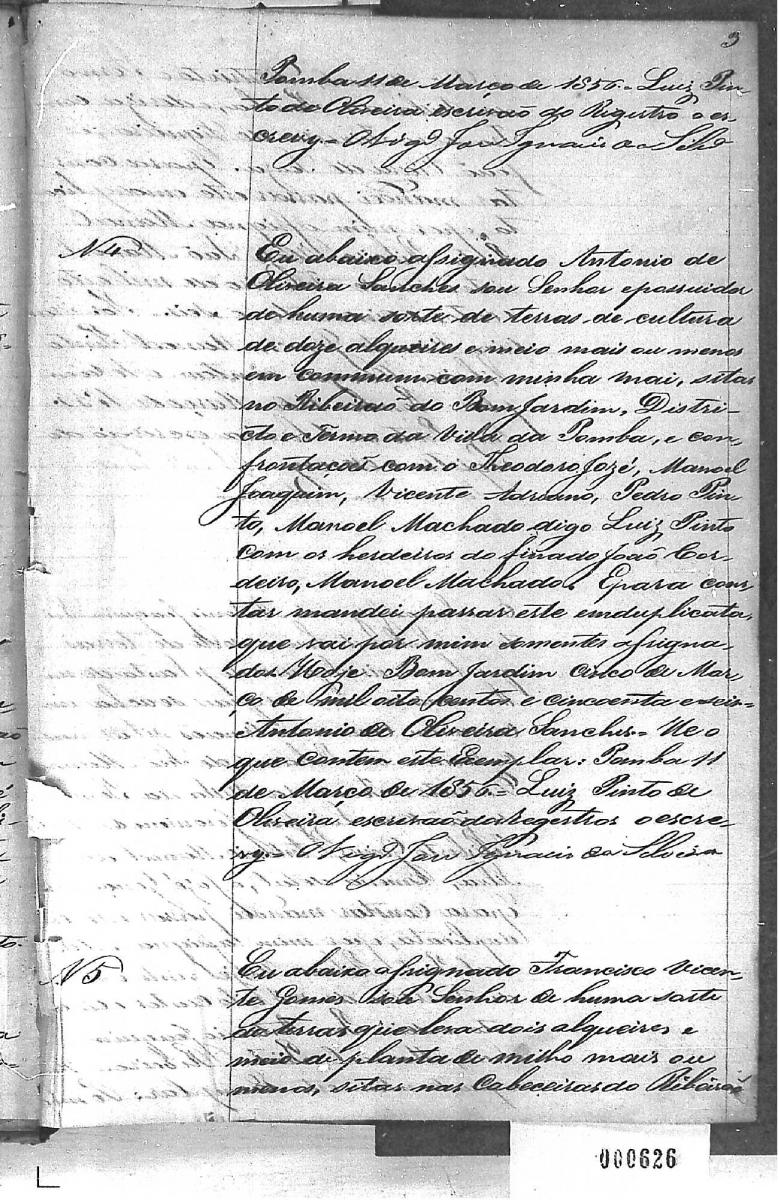 3
Pomba 11 de Março de 1856. Luiz Pin-
to de Oliveira escrivão do Registro o es-
crevy = O Vigrº José Ignacio da Silvª
N 4
Eu abaixo assignado Antonio de
Oliveira Sanches sou Senhor e possuidor
de huma sorte de terras de cultura
de doze alqueires e meio mais ou menos
em commum com minha mai, sitas
no Ribeirão do Bom Jardim, Distri-
cto e Termo da Villa da Pomba, e con-
frontações com o Theodoro Jozé, Manoel
Joaquim, Vicente Adreano, Pedro Pin-
to, Manoel Machado digo Luiz Pinto
com os herdeiros do finado João Cor-
deiro, Manoel Machado. E para cons-
tar mandei passar este em duplicata,
que vai por mim somentes assigna-
dos. Hoje Bom Jardim cinco de Mar-
ço de mil oito centos e cincoenta e seis =
Antonio de Oliveira Sanches = He o
que contem este Exemplar: Pomba 11
de Março de 1856 = Luiz Pinto de
Oliveira escrivão dos Registros o escre-
vy = O Vigº José Ignacio da Silveira
N 5
Eu abaixo assignado Francisco Vicen-
te Gomes sou Senhor de huma sorte
de terras que leva dois alqueires e
meio de planta de milho mais ou
menos, sitas nas Cabeceiras do Ribeirão
000626